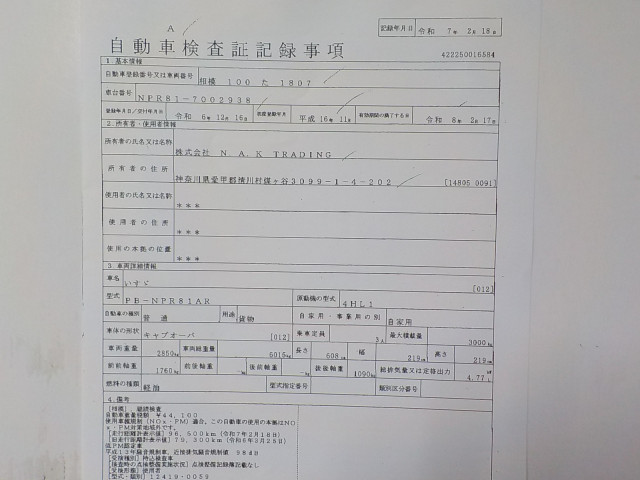 A
記録年月日 令和 7年 2月18日
自動車検査証記録事項
422250016584
1.基本情報
自動車登録番号又は車両番号 相模 100 た 1807
車台番号 NPR81-7002938
登録年月日/交付年月日 令和 6年12月16日 初度登録年月 平成16年11月 有効期間の満了する日 令和 8年 2月17日
2.所有者・使用者情報
所有者の氏名又は名称 株式会社 N.A.K TRADING
所有者の住所 神奈川県愛甲郡清川村煤ヶ谷3099-1-4-202 [14805 0091]
使用者の氏名又は名称 ***
使用者の住所 ***
使用の本拠の位置 ***
3.車両詳細情報
車名 いすゞ [012]
型式 PB-NPR81AR 原動機の型式 4HL1
自動車の種別 普通 用途 貨物 自家用・事業用の別 自家用
車体の形状 キャブオーバ [012] 乗車定員 3人 最大積載量 3000kg
車両重量 2850kg 車両総重量 6015kg 長さ 608cm 幅 219cm 高さ 219cm
前前軸重 1760kg 前後軸重 -kg 後前軸重 -kg 後後軸重 1090kg 総排気量又は定格出力 4.77L
燃料の種類 軽油 型式指定番号 類別区分番号
4.備考
[相模] 継続検査
自動車重量税額 ¥44,100
使用車種規制(NOx・PM)適合、この自動車の使用の本拠はNO
x・PM対策地域外です。
[走行距離計表示値] 96,500km(令和7年2月18日)
[旧走行距離計表示値] 79,300km(令和6年3月25日)
低PM認定車
平成12年騒音規制車、近接排気騒音規制値 98dB
[受検種別] 持込検査車
[検査時の点検整備実施状況] 点検整備記録簿記載なし
[受検形態] 使用者
[型式・類別] 12419-0059